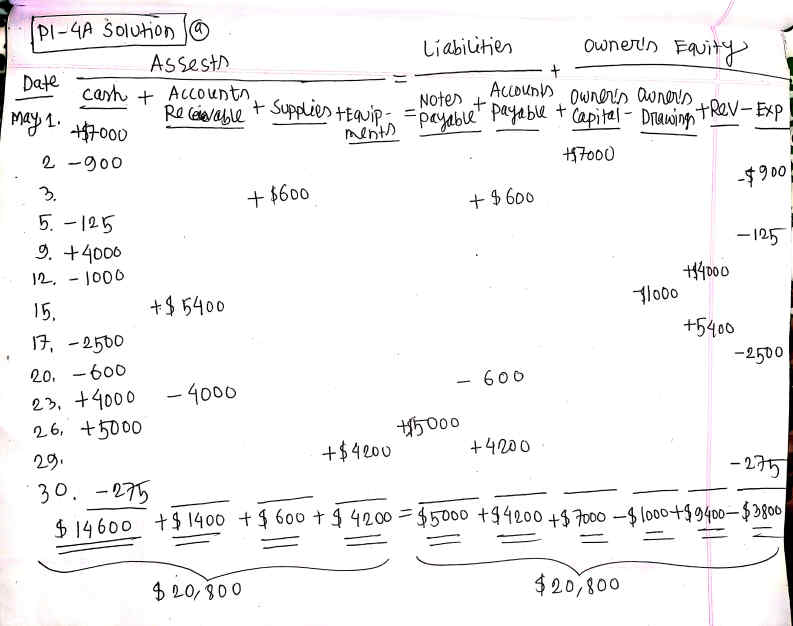 P1-4A Solution (a)
Assests = Liabilities + Owner's Equity
Date Cash + Accounts Receivable + Supplies + Equip-ments = Notes Payable + Accounts Payable + Owner's Capital - Owner's Drawings + Rev - Exp
May 1. +$7000 +$7000
2 -900 -$900
3. +$600 +$600
5. -125 -125
9. +4000 +$4000
12. -1000 -$1000
15. +$5400 +5400
17. -2500 -2500
20. -600 -600
23. +4000 -4000
26. +5000 +$5000
29. +$4200 +4200
30. -275 -275
$14600 +$1400 +$600 + $4200 = $5000 +$4200 +$7000 -$1000 +$9400 -$3800
$20,800 $20,800